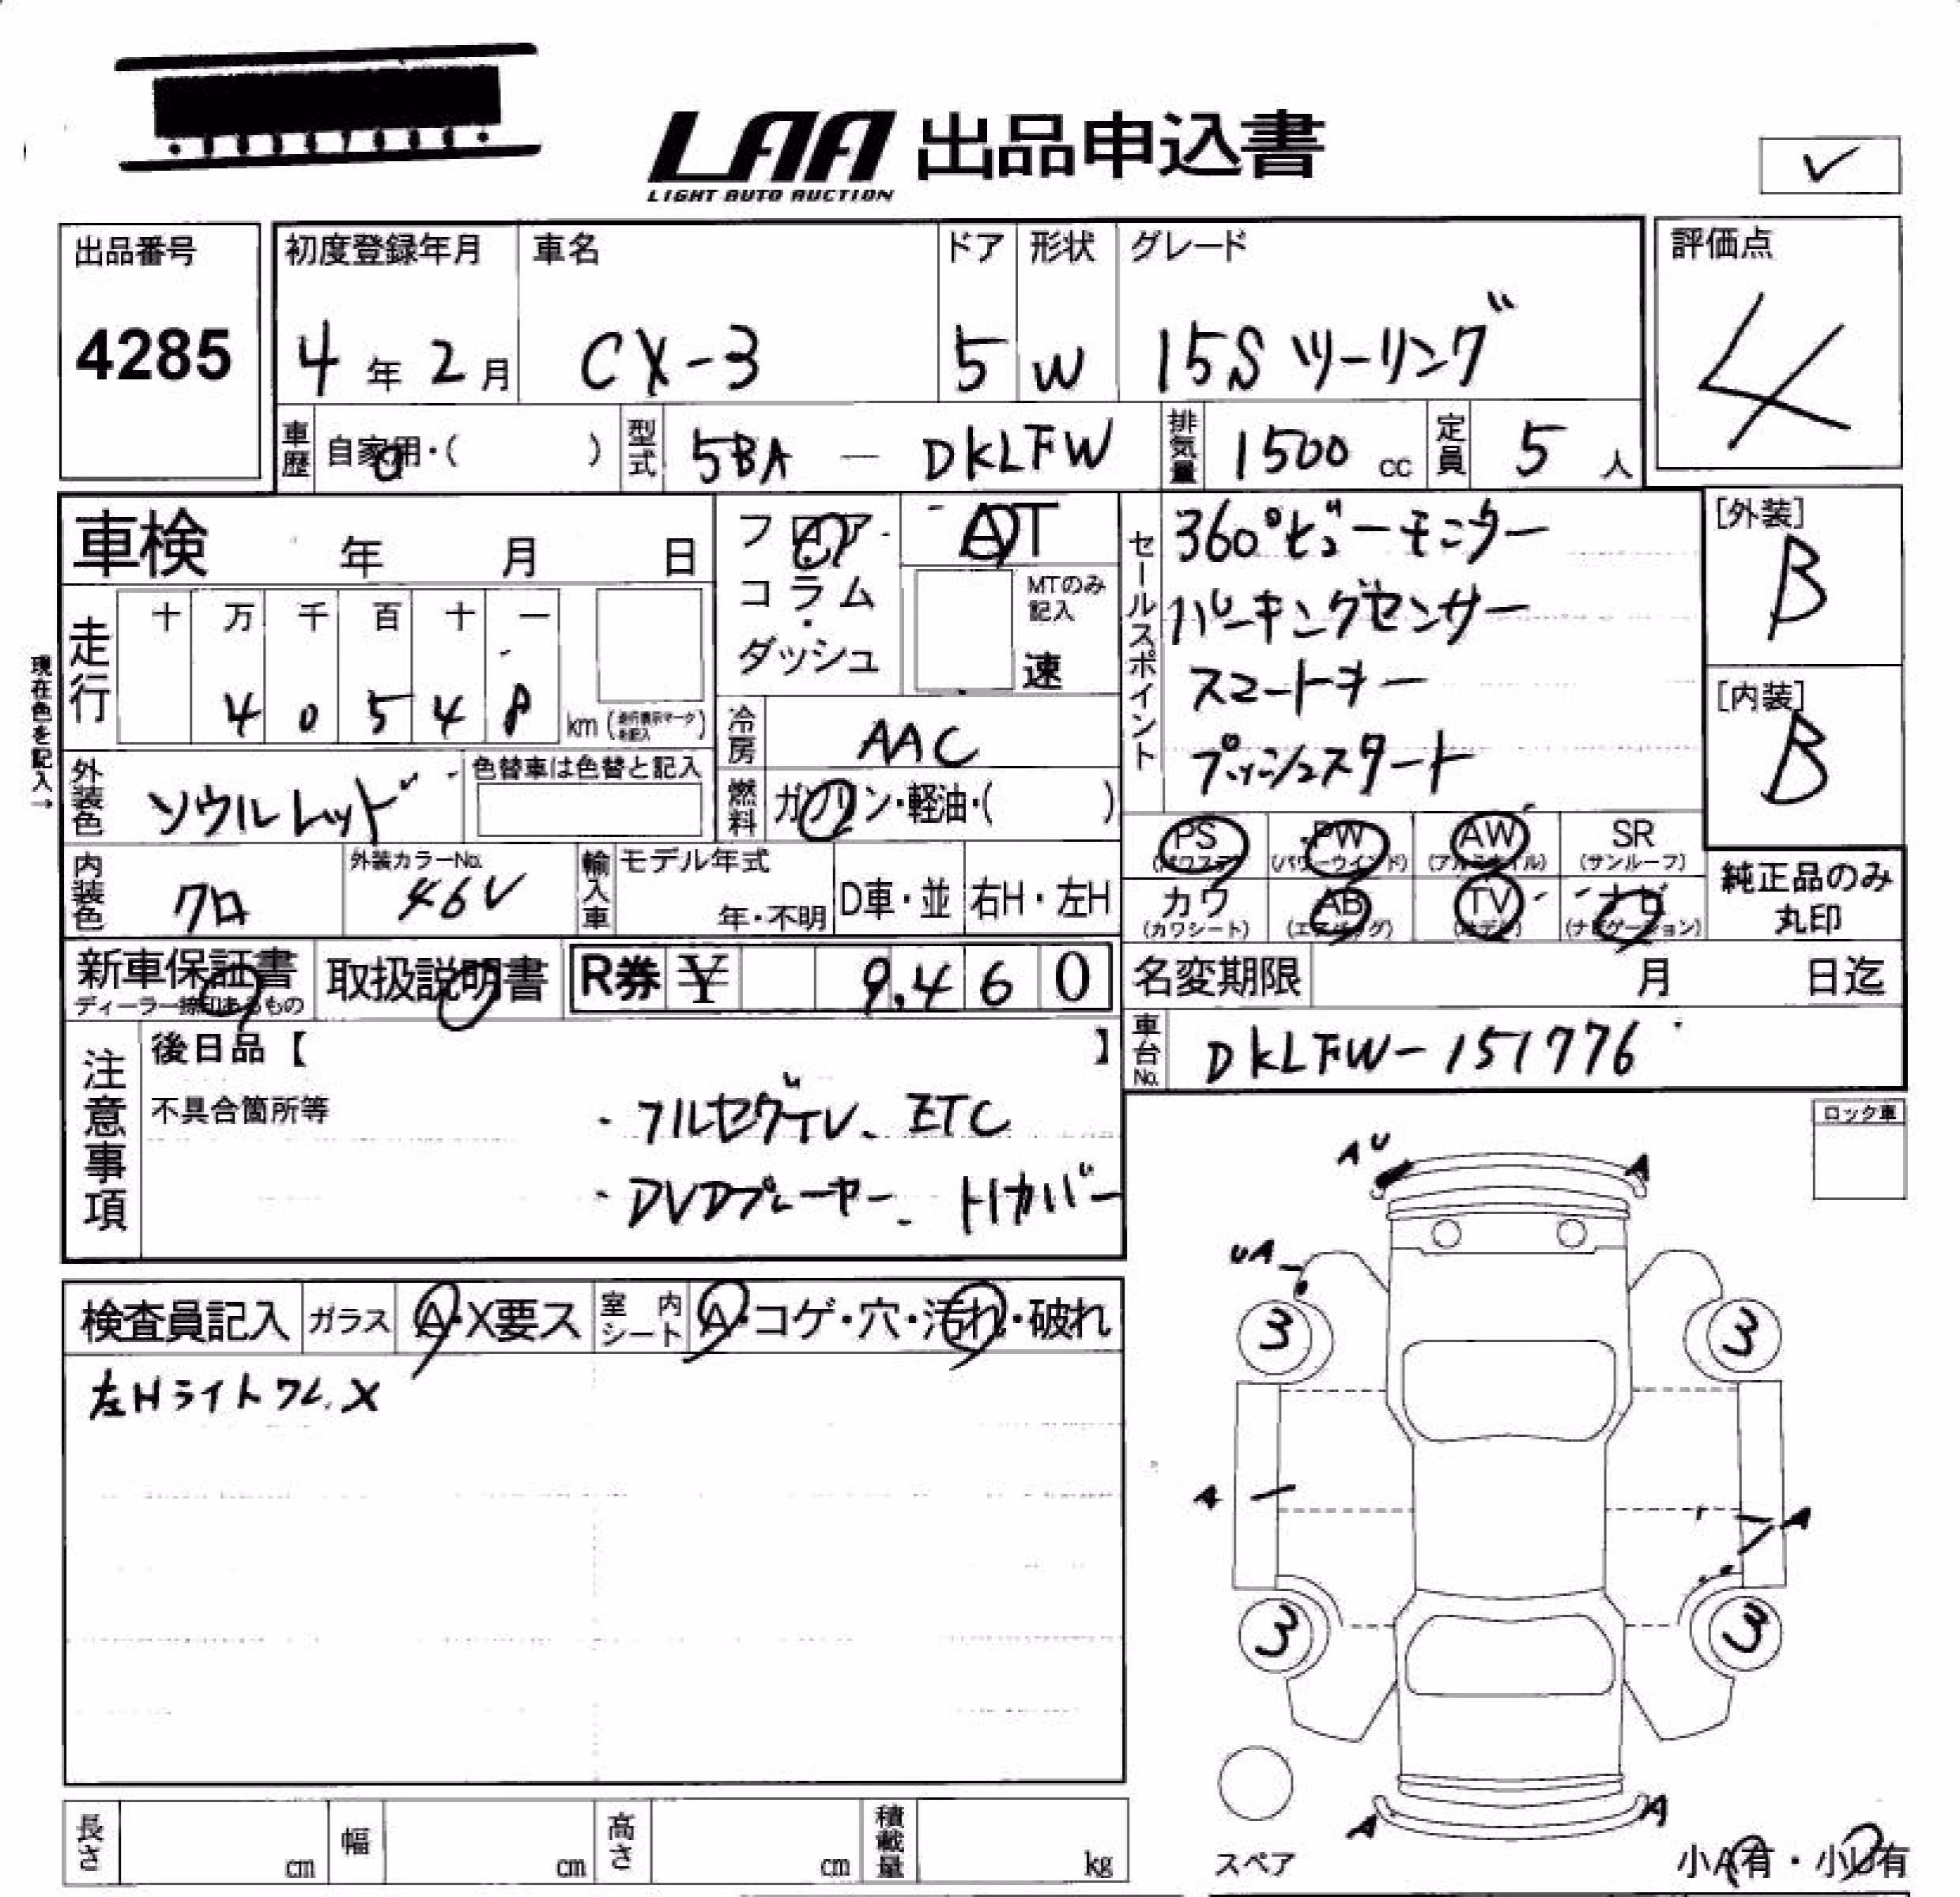 LAA 出品申込書
LIGHT AUTO AUCTION
出品番号
4285
初度登録年月
4年2月
車名
CX-3
ドア
5
形状
W
グレード
15S ツーリング
評価点
4
車歴
自家用・( )
型式
5BA - DKLFW
排気量
1500 cc
定員
5 人
車検 年 月 日
フロア
コラム
・
ダッシュ
AT
MTのみ
記入
速
セールスポイント
360°ビューモニター
パーキングセンサー
スマートキー
プッシュスタート
[外装]
B
[内装]
B
現在色を記入→
走行
十 万 千 百 十 一
4 0 5 4 8 km (走行表示マークを記入)
冷房
AAC
外装色
ソウルレッド
色替車は色替と記入
燃料
ガソリン・軽油・( )
PS
(パワステ)
PW
(パワーウインド)
AW
(アルミホイル)
SR
(サンルーフ)
カワ
(カワシート)
AB
(エアバッグ)
TV
ナビ
(ナビゲーション)
純正品のみ
丸印
内装色
クロ
外装カラーNo.
46V
輸入車
モデル年式
年・不明
D車・並
右H・左H
新車保証書
ディーラー捺印あるもの
取扱説明書
R券 ¥ 9,460
名変期限 月 日迄
車台No.
DKLFW-151776
注意事項
後日品【 】
不具合箇所等
・フルセグTV、ETC
・DVDプレーヤー、トノカバー
ロック車
検査員記入
ガラス
A・X要ス
室内シート
A・コゲ・穴・汚れ・破れ
左Hライトワレ X
AU
A
UA
3
3
A
A
3
3
A
A
スペア
小A有・小U有
長さ cm
幅 cm
高さ cm
積載量 kg